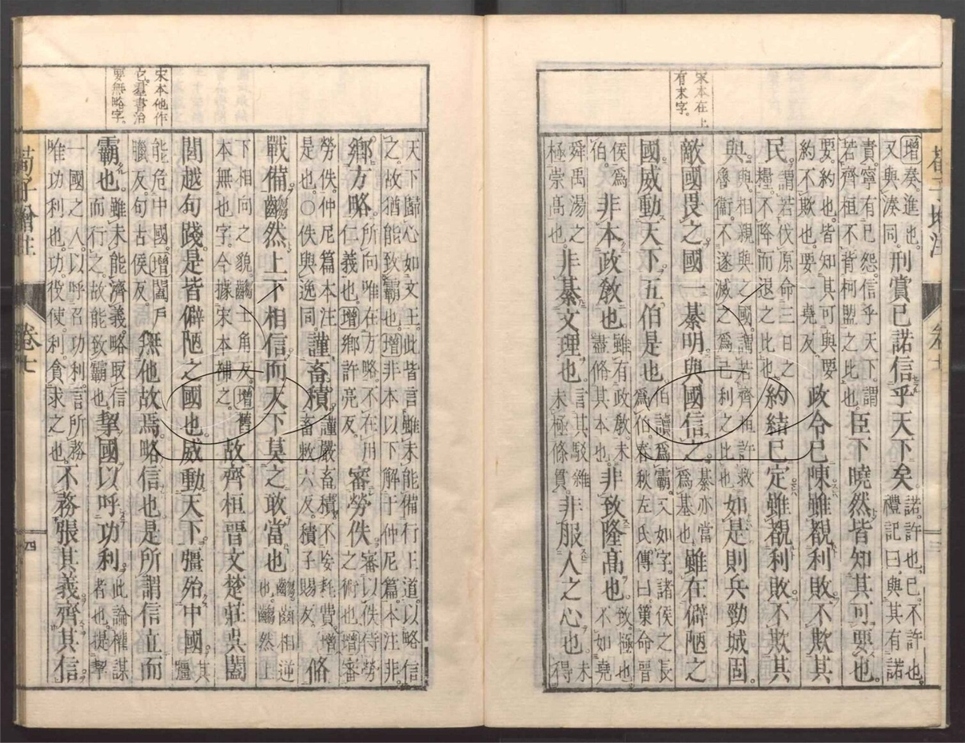 荀子增注 卷七 三
宋本在上
有末字。
增奏進也。
又與湊同。刑賞已諾信乎天下矣。諾許也。已不許也。
禮記曰。與其有諾
責寧有已怨。信乎天下。謂
若齊桓不背柯盟之比也臣下曉然皆知其可要也。
要約也。皆知其可與要
約不欺也。要一堯反政令已陳。雖覩利敗。不欺其
民。謂若伐原命三日之
糧不降而退之比也約結已定。雖覩利敗。不欺其
與。與相親與之國。謂若齊桓許救
魯衛。不遂滅之爲己利之比也如是則兵勁城固。
敵國畏之。國一綦明。與國信之。綦亦當
爲基也雖在僻陋之
國。威動天下。五伯是也。伯讀爲霸。又如字。諸侯之長
爲伯。春秋左氏傳曰。策命晉
侯爲
伯。非本政敎也。雖有政敎未
盡脩其本也非致隆高也。致極也。
不如堯
舜禹湯之
極崇高也非綦文理也。言其駁雜
未極條貫非服人之心也。未
得
天下歸心如文王。此皆言雖未能備行王道。以略信
之。故猶能致霸也。增非本以下解于仲尼篇。本注非
鄉方略。所向唯在方略。不在用
仁義也。增鄉許亮反。審勞佚。審以佚待勞
之術也。增審
勞佚。仲尼篇本注
是也。○佚與逸同謹畜積。謹嚴畜積不妄耗費。增
畜敕六反。積子賜反。脩
戰備。齺然上下相信。而天下莫之敢當也。齺齒相迎
也。齺然上
下相向之貌。齺士角反。增舊
本無也字。今據宋本補之。故齊桓晉文楚莊吳闔
閭越句踐。是皆僻陋之國也。威動天下。彊殆中國。其
彊
能危中國。增闔戶
臘反。句古侯反無他故焉。略信也。是所謂信立而
霸也。雖未能濟義。略取信
而行之。故能致霸也挈國以呼功利。此論權謀
者也。提挈
一國之人。以呼召功利。言所務
唯功利也。功役使。利貪求之也。不務張其義。齊其信
宋本他作
它。羣書治
要無略字。
荀子增註 卷七 四